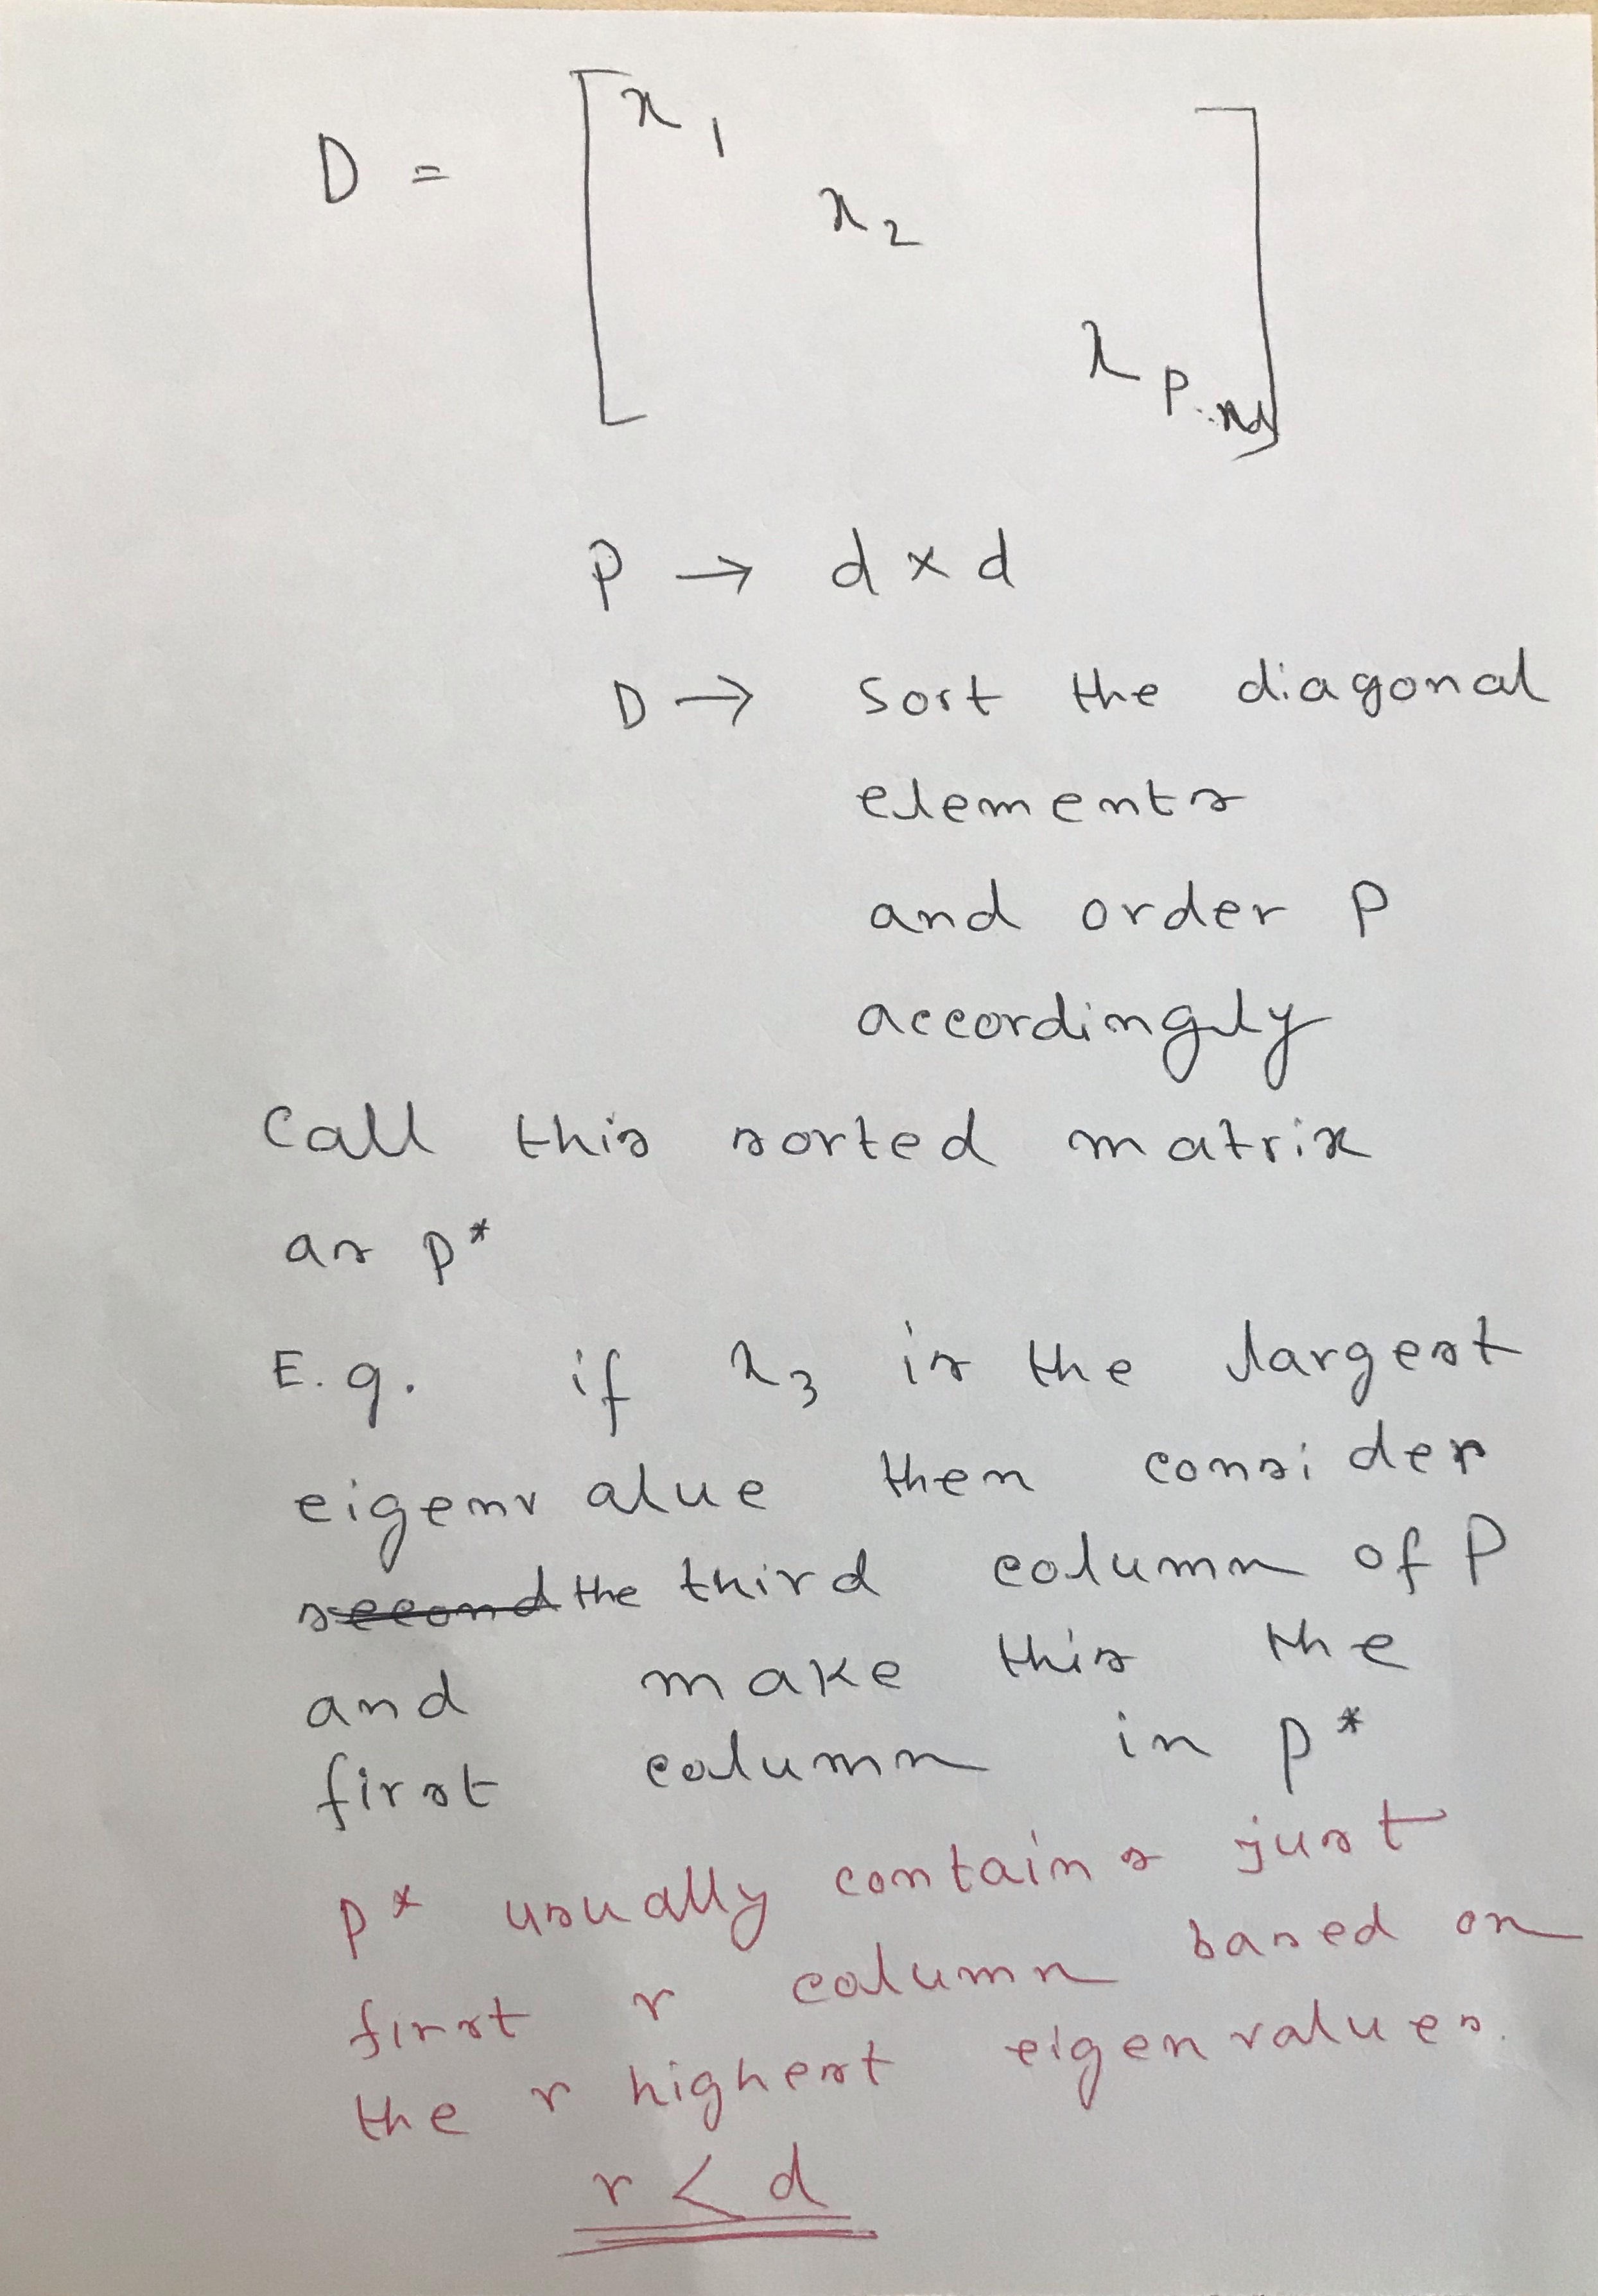 D = [ λ1
λ2
λp ]
P → d × d
D → sort the diagonal
elements
and order P
accordingly
Call this sorted matrix
as P*
E.g. if λ3 is the largest
eigenvalue then consider
second the third column of P
and make this the
first column in P*
P* usually contains just
first r column based on
the r highest eigenvalues.
r < d